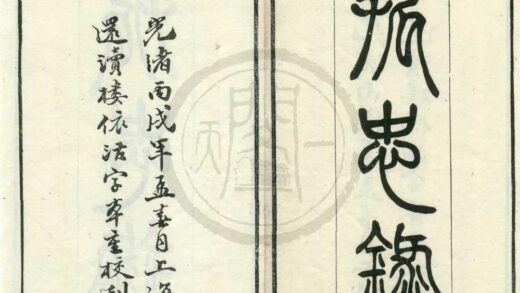 孤忠錄
光緒丙戌年孟春月上
還讀樓依活字本重校